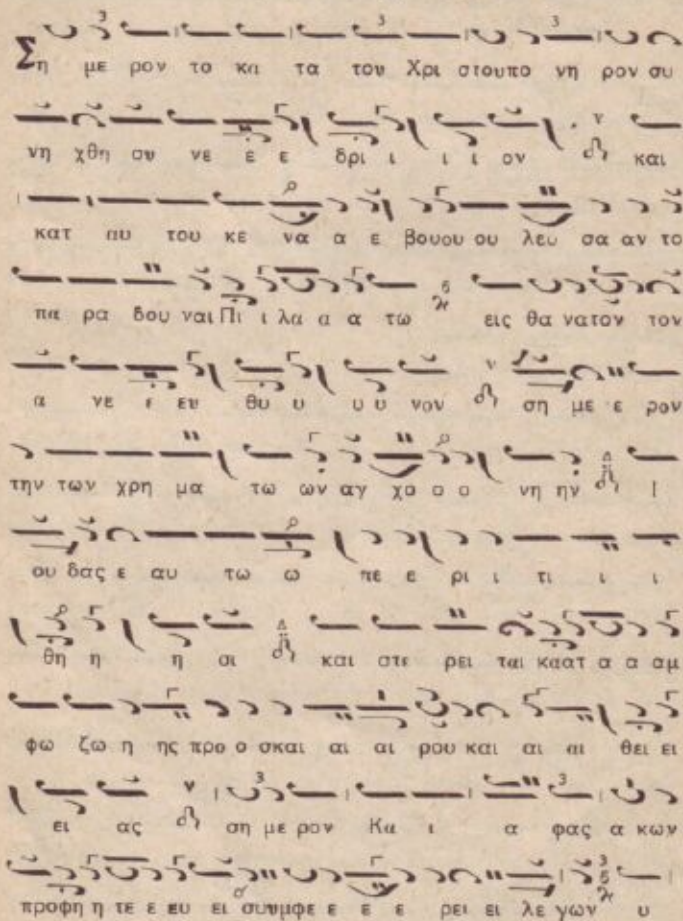 Ση με ρον το κα τα του Χρι στουπο νη ρον συ
νη χθη συ νε ε ε δρι ι ι ι ον και
κατ αυ του κε να α ε βουου ου λευ σα αν το
πα ρα δου ναι Πι ι λα α α τω εις θα νατον τον
α νε ε ευ θυ υ υ υ νον ση με ε ρον
την των χρη μα τω ων αγ χο ο ο νη ην Ι
ου δας ε αυ τω ω πε ε ρι ι τι ι ι
θη η η σι και στε ρει ται καατ α α αμ
φω ζω η ης προ ο σκαι αι αι ρου και αι αι θει ει
ει ας ση με ρον Κα ι α φας α κων
προφη η τε ε ευ ει συυμφε ε ε ε ρει ει λε γων υ